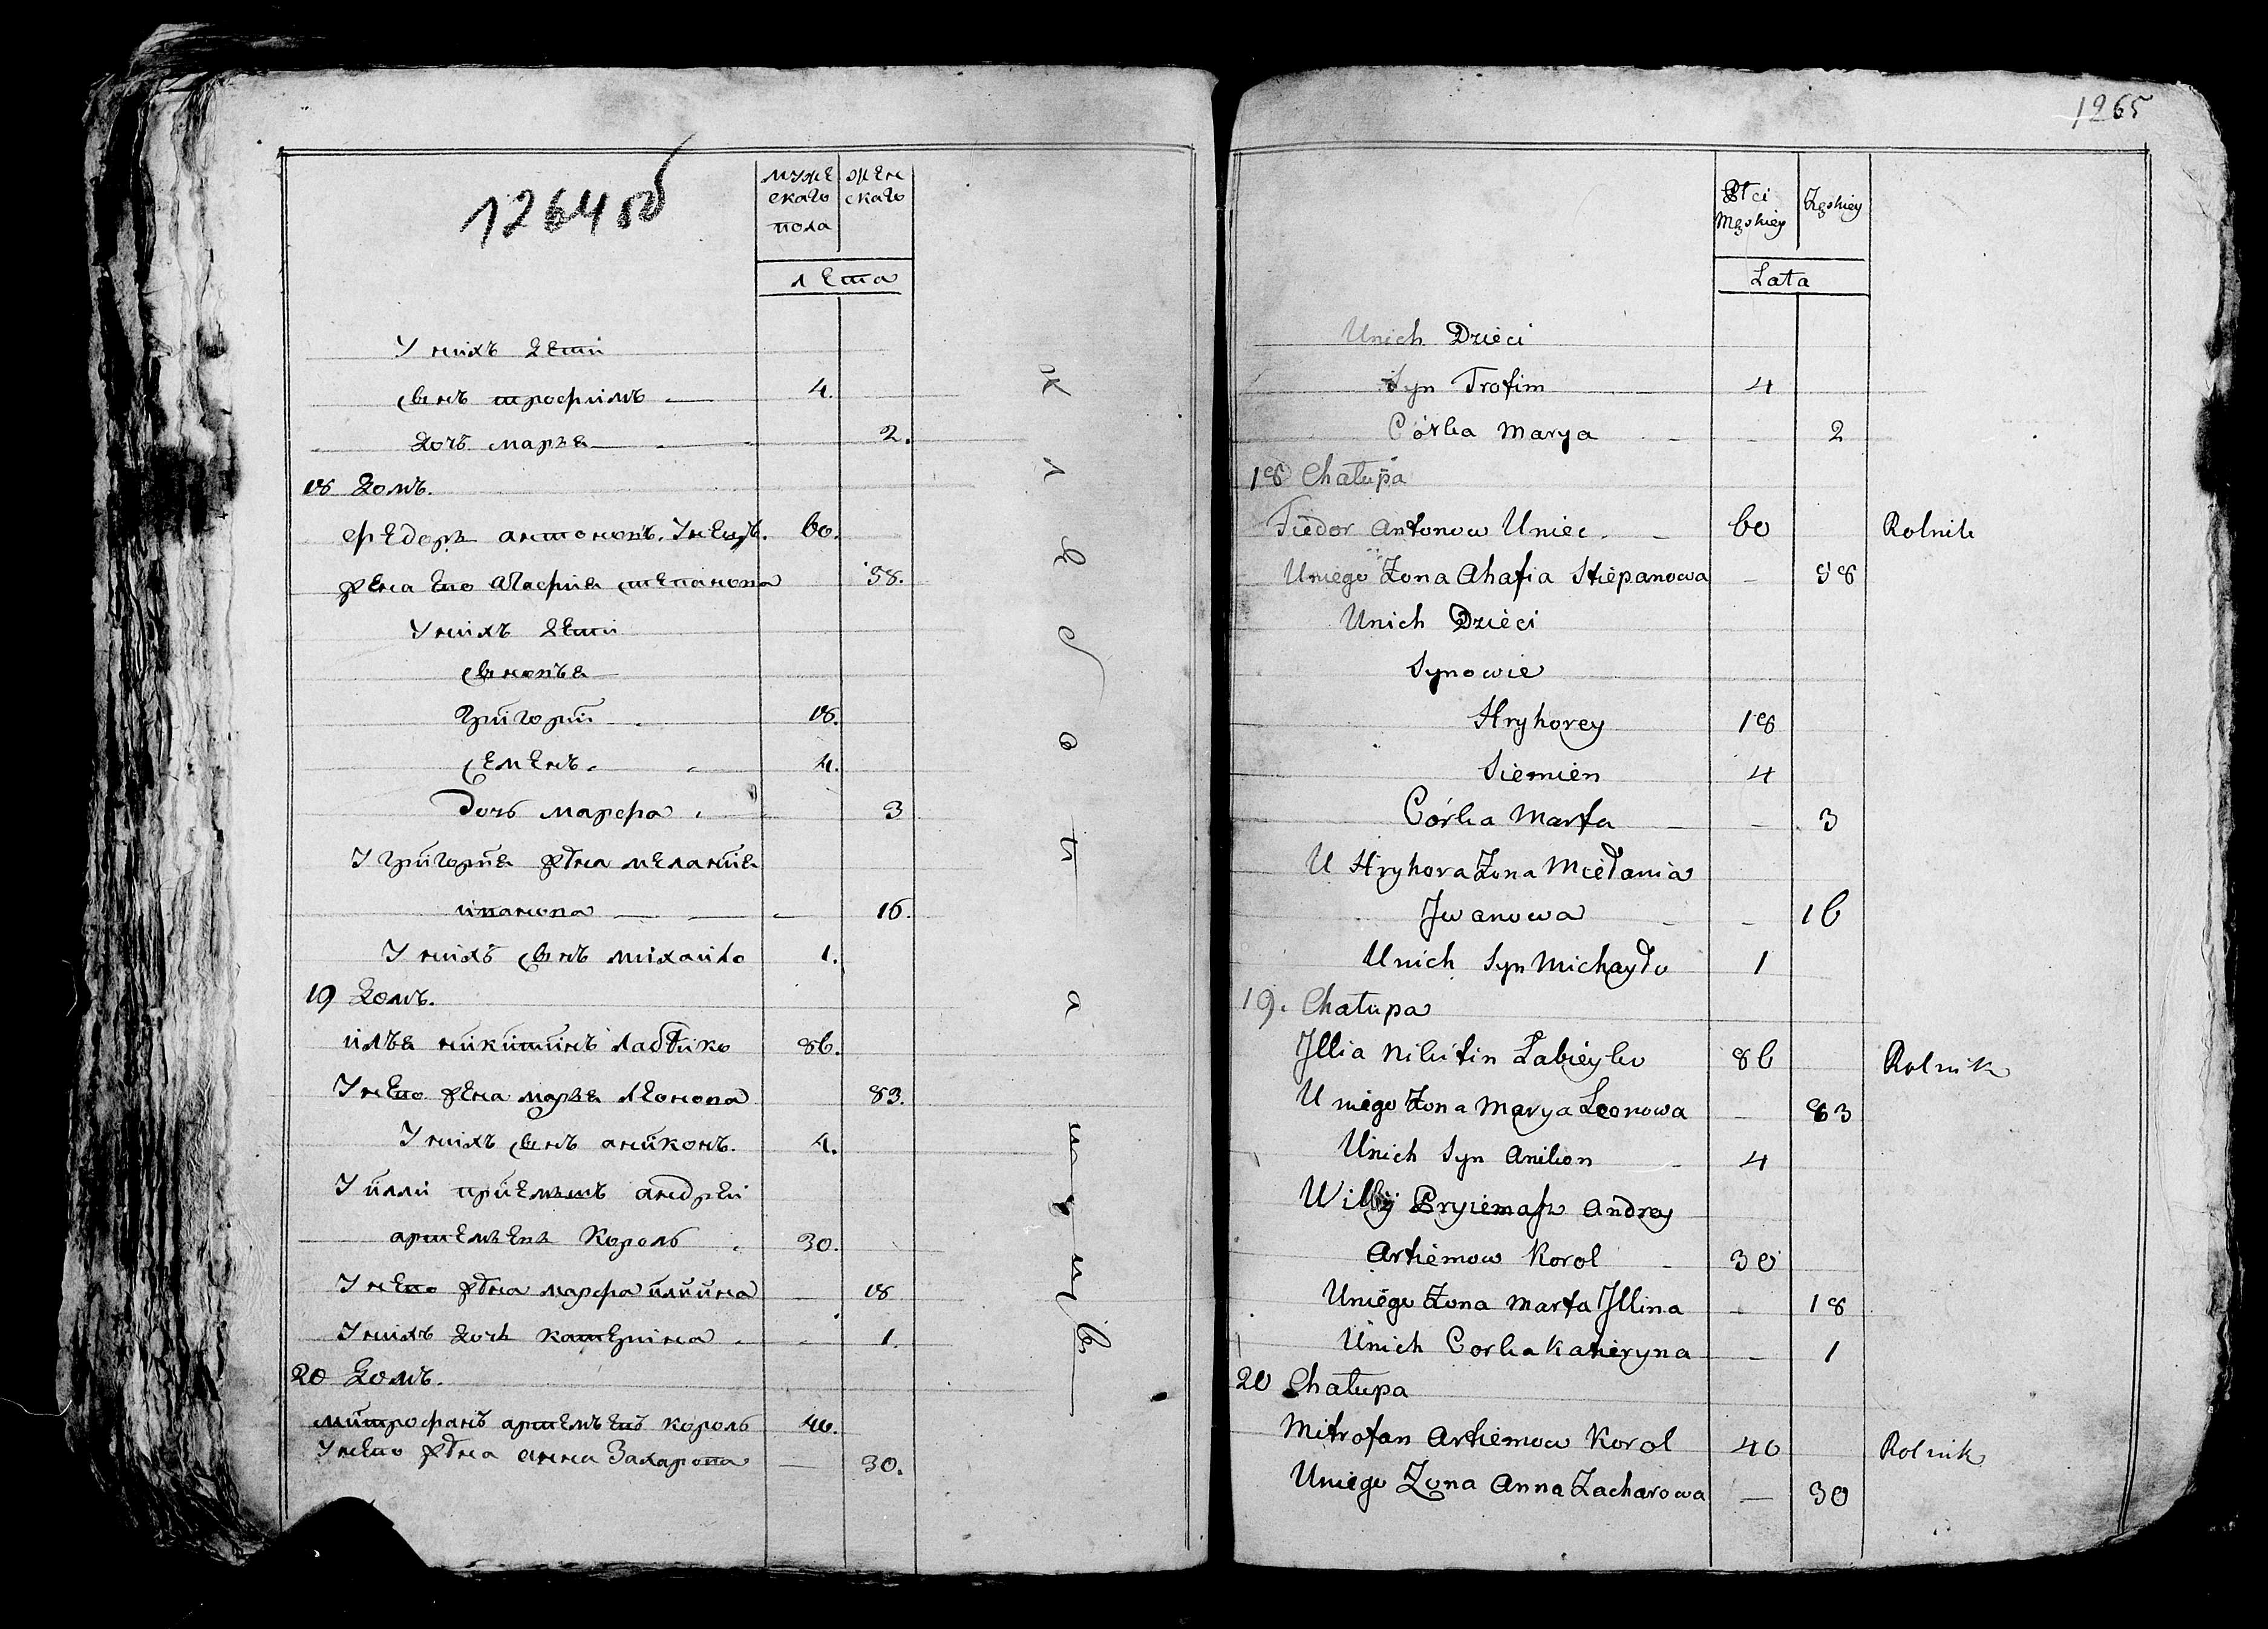 1264 об
муже
скаго
пола
жен
скаго
лета
У нихъ дети
сынъ трофимъ 4.
дочь марья 2.
18 домъ.
федоръ антоновъ Унецъ. 60.
жена его агафия степанова 58.
У нихъ дети
сыновья
григорий 18.
семенъ 4.
дочь марфа 3
У григория жена мелания
иванова 16.
У нихъ сынъ михайло 1.
19 домъ.
илья никитинъ лабейко 86.
У него жена марья леонова 83.
У нихъ сынъ аниконъ. 4.
У илли приемышъ андрей
артемьевъ король 30.
У него жена марфа илиина 18
У нихъ дочь катерина 1.
20 домъ.
митрофанъ артемьевъ король 40.
У него жена анна захарова 30.
1265
Płci
Męskiey
Żęskiey
Lata
Unich Dzieci
Syn Trofim 4
Córka Marya 2
18 Chałupa
Fiedor Antonow Uniec 60 Rolnik
Uniego Żona Ahafia Stiepanowa 58
Unich Dzieci
Synowie
Hryhorey 18
Siemien 4
Córka Marfa 3
U Hryhora Żona Miełania
Jwanowa 16
Unich Syn Michayło 1
19. Chałupa
Jllia Nikitin Łabieyko 86 Rolnik
Uniego Żona Marya Leonowa 83
Unich Syn Anikon 4
Andrey
Artiemow Korol 30
Uniego Żona Marfa Jllina 18
Unich Corka Katieryna 1
20 Chałupa
Mitrofan Artiemow Korol 40 Rolnik
Uniego Żona Anna Zacharowa 30